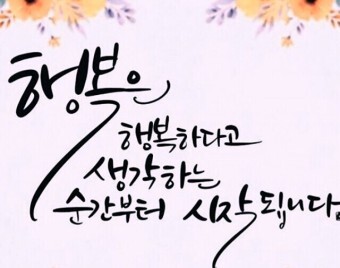 행복은
행복하다고
생각하는
순간부터 시작됩니다